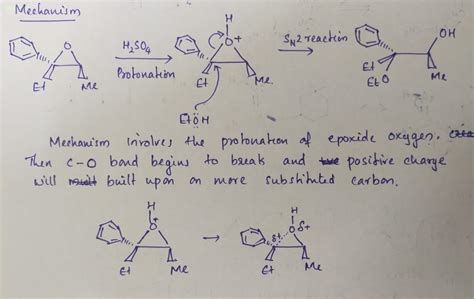 Mechanism
H
O
H₂SO₄
Protonation
O+
SN2 reaction
OH
Et
Me
Et
Me
Et
EtO
Me
EtÖH
Mechanism involves the protonation of epoxide oxygen.
Then C-O bond begins to break and positive charge
will built upon on more substituted carbon.
H
O+
→
H
O δ+
δ+
Et
Me
Et
Me